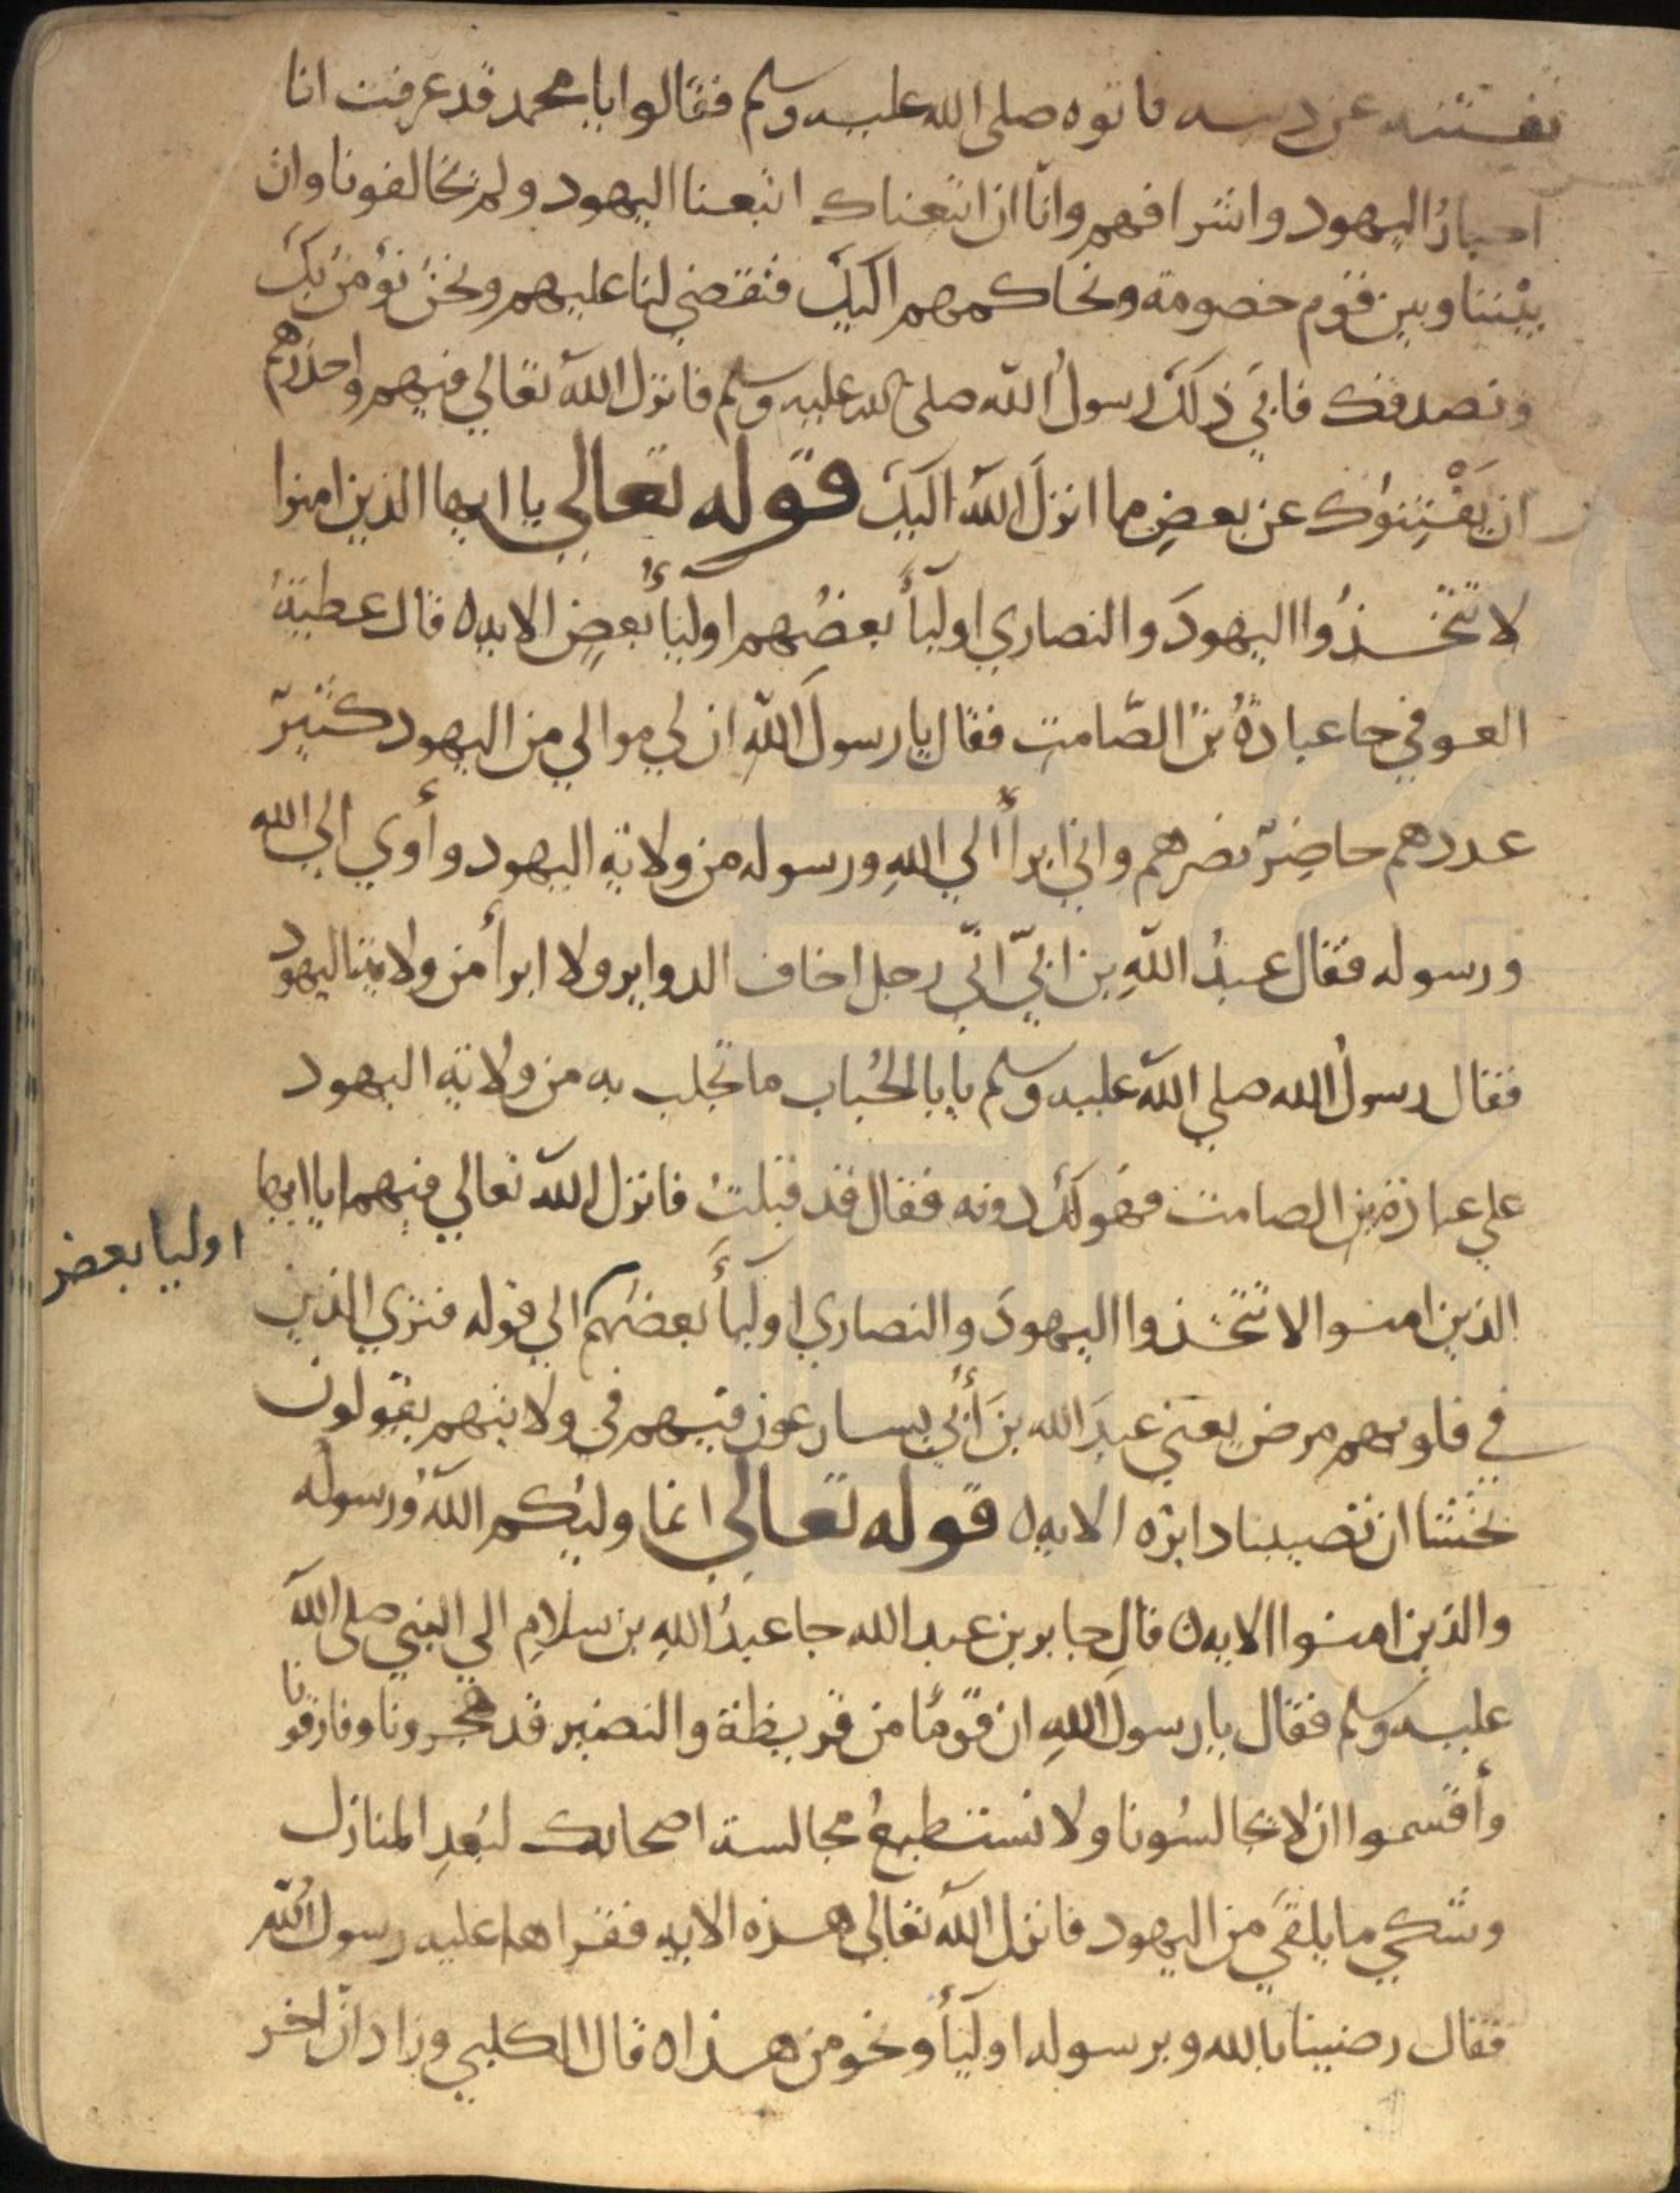 نفتنه عن دينه فاتوه صلى الله عليه وسلم فقالوا يا محمد قد عرفت انا
احبارُ اليهود واشرافهم وانّا ان اتبعناك اتبعنا اليهود ولم يخالفونا وان
بيْننا وبين قوم خصومة ونحاكمهم اليكَ فتقضي لنا عليهم ونحنُ نؤمنُ بكَ
ونصدقك فابي ذلكَ رسولُ الله صلى الله عليه وسلم فانزل الله تعالي فيهم واحذرهم
ان يَفْتِنوك عن بعضِ ما انزلَ الله اليكَ قوله تعالي يا ايها الذين امنوا
لا تتّخذُوا اليهودَ والنصاري اوليآءَ بعضُهم اوليآءُ بعضٍ الايه ه قال عطيةُ
العوفي جا عبادةُ بنُ الصّامت فقال يا رسولَ اللهِ ان لي موالي من اليهود كثيرٌ
عددهم حاضِرٌ نصرهم واني ابرأُ الي اللهِ ورسوله من ولاية اليهود وأوي الي الله
ورسوله فقال عبدُ اللهِ بن ابيّ انّي رجل اخاف الدواير ولا ابرأ من ولاية اليهود
فقال رسولُ الله صلي الله عليه وسلم يا با الحُباب ما تجلب به من ولاية اليهود
علي عبادة بن الصامت فهو لكَ دونه فقال قد قبلتُ فانزل الله تعالي فيهما يا ايها
الذين امنوا لا تتخذوا اليهودَ والنصاري اوليآءَ بعضهم الي قوله فتري الذين
اوليا بعض
في قلوبهم مرض يعني عبدَ الله بنَ أُبيّ يسارعون فيهم في ولايتهم يقولون
نخشا ان تصيبنا دايره الايه ه قوله تعالي انما وليكم اللهُ ورسولُه
والذين امنوا الايه ه قال جابر بن عبد الله جا عبدُ اللهِ بن سلامٍ الي النبي صلي الله
عليه وسلم فقال يا رسولَ اللهِ ان قومًا من قريظة والنضير قد هجرونا وفارقونا
وأقسموا ان لا يجالسُونا ولا نستطيعُ مجالسة اصحابك لبُعدِ المنازل
وشكي ما يلقَي من اليهود فانزل الله تعالي هذه الايه فقراها عليه رسولُ الله
فقال رضينا بالله وبرسوله اوليآءَ ونحو من هذا ه قال الكلبي وزاد ان اخر